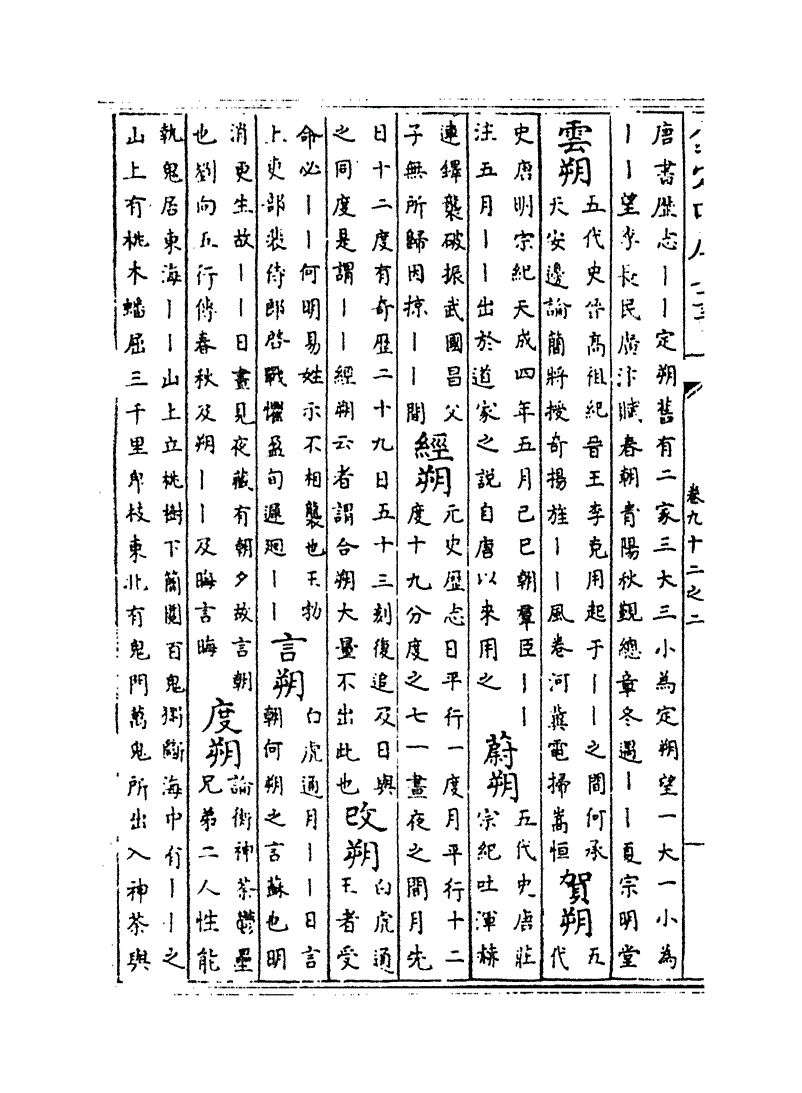 卷九十二之二
唐書歷志丨丨定朔舊有二家三大三小為定朔望一大一小為
丨丨望李長民廣汴賦春朝青陽秋覲總章冬遇丨丨夏宗明堂
雲朔
五代史晉高祖紀晉王李克用起于丨丨之間何承
天安邊論簡將授奇揚旌丨丨風卷河冀電掃嵩恒
賀朔
五
代
史唐明宗紀天成四年五月己巳朝羣臣丨丨
注五月丨丨出於道家之說自唐以來用之
蔚朔
五代史唐莊
宗紀吐渾赫
連鐸襲破振武國昌父
子無所歸因掠丨丨間
經朔
元史歷志日平行一度月平行十二
度十九分度之七一晝夜之間月先
日十二度有奇歷二十九日五十三刻復追及日與
之同度是謂丨丨經朔云者謂合朔大量不出此也
改朔
白虎通
王者受
命必丨丨何明易姓示不相襲也王勃
上吏部裴侍郎啓戰懼盈旬遲迴丨丨
言朔
白虎通月丨丨日言
朝何朔之言蘇也明
消更生故丨丨日晝見夜藏有朝夕故言朝
也劉向五行傳春秋及朔丨丨及晦言晦
度朔
論衡神荼鬱壘
兄弟二人性能
執鬼居東海丨丨山上立桃樹下簡閱百鬼獨斷海中有丨丨之
山上有桃木蟠屈三千里卑枝東北有鬼門萬鬼所出入神荼與